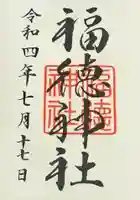 令和四年七月十七日
福徳神社
福徳神社